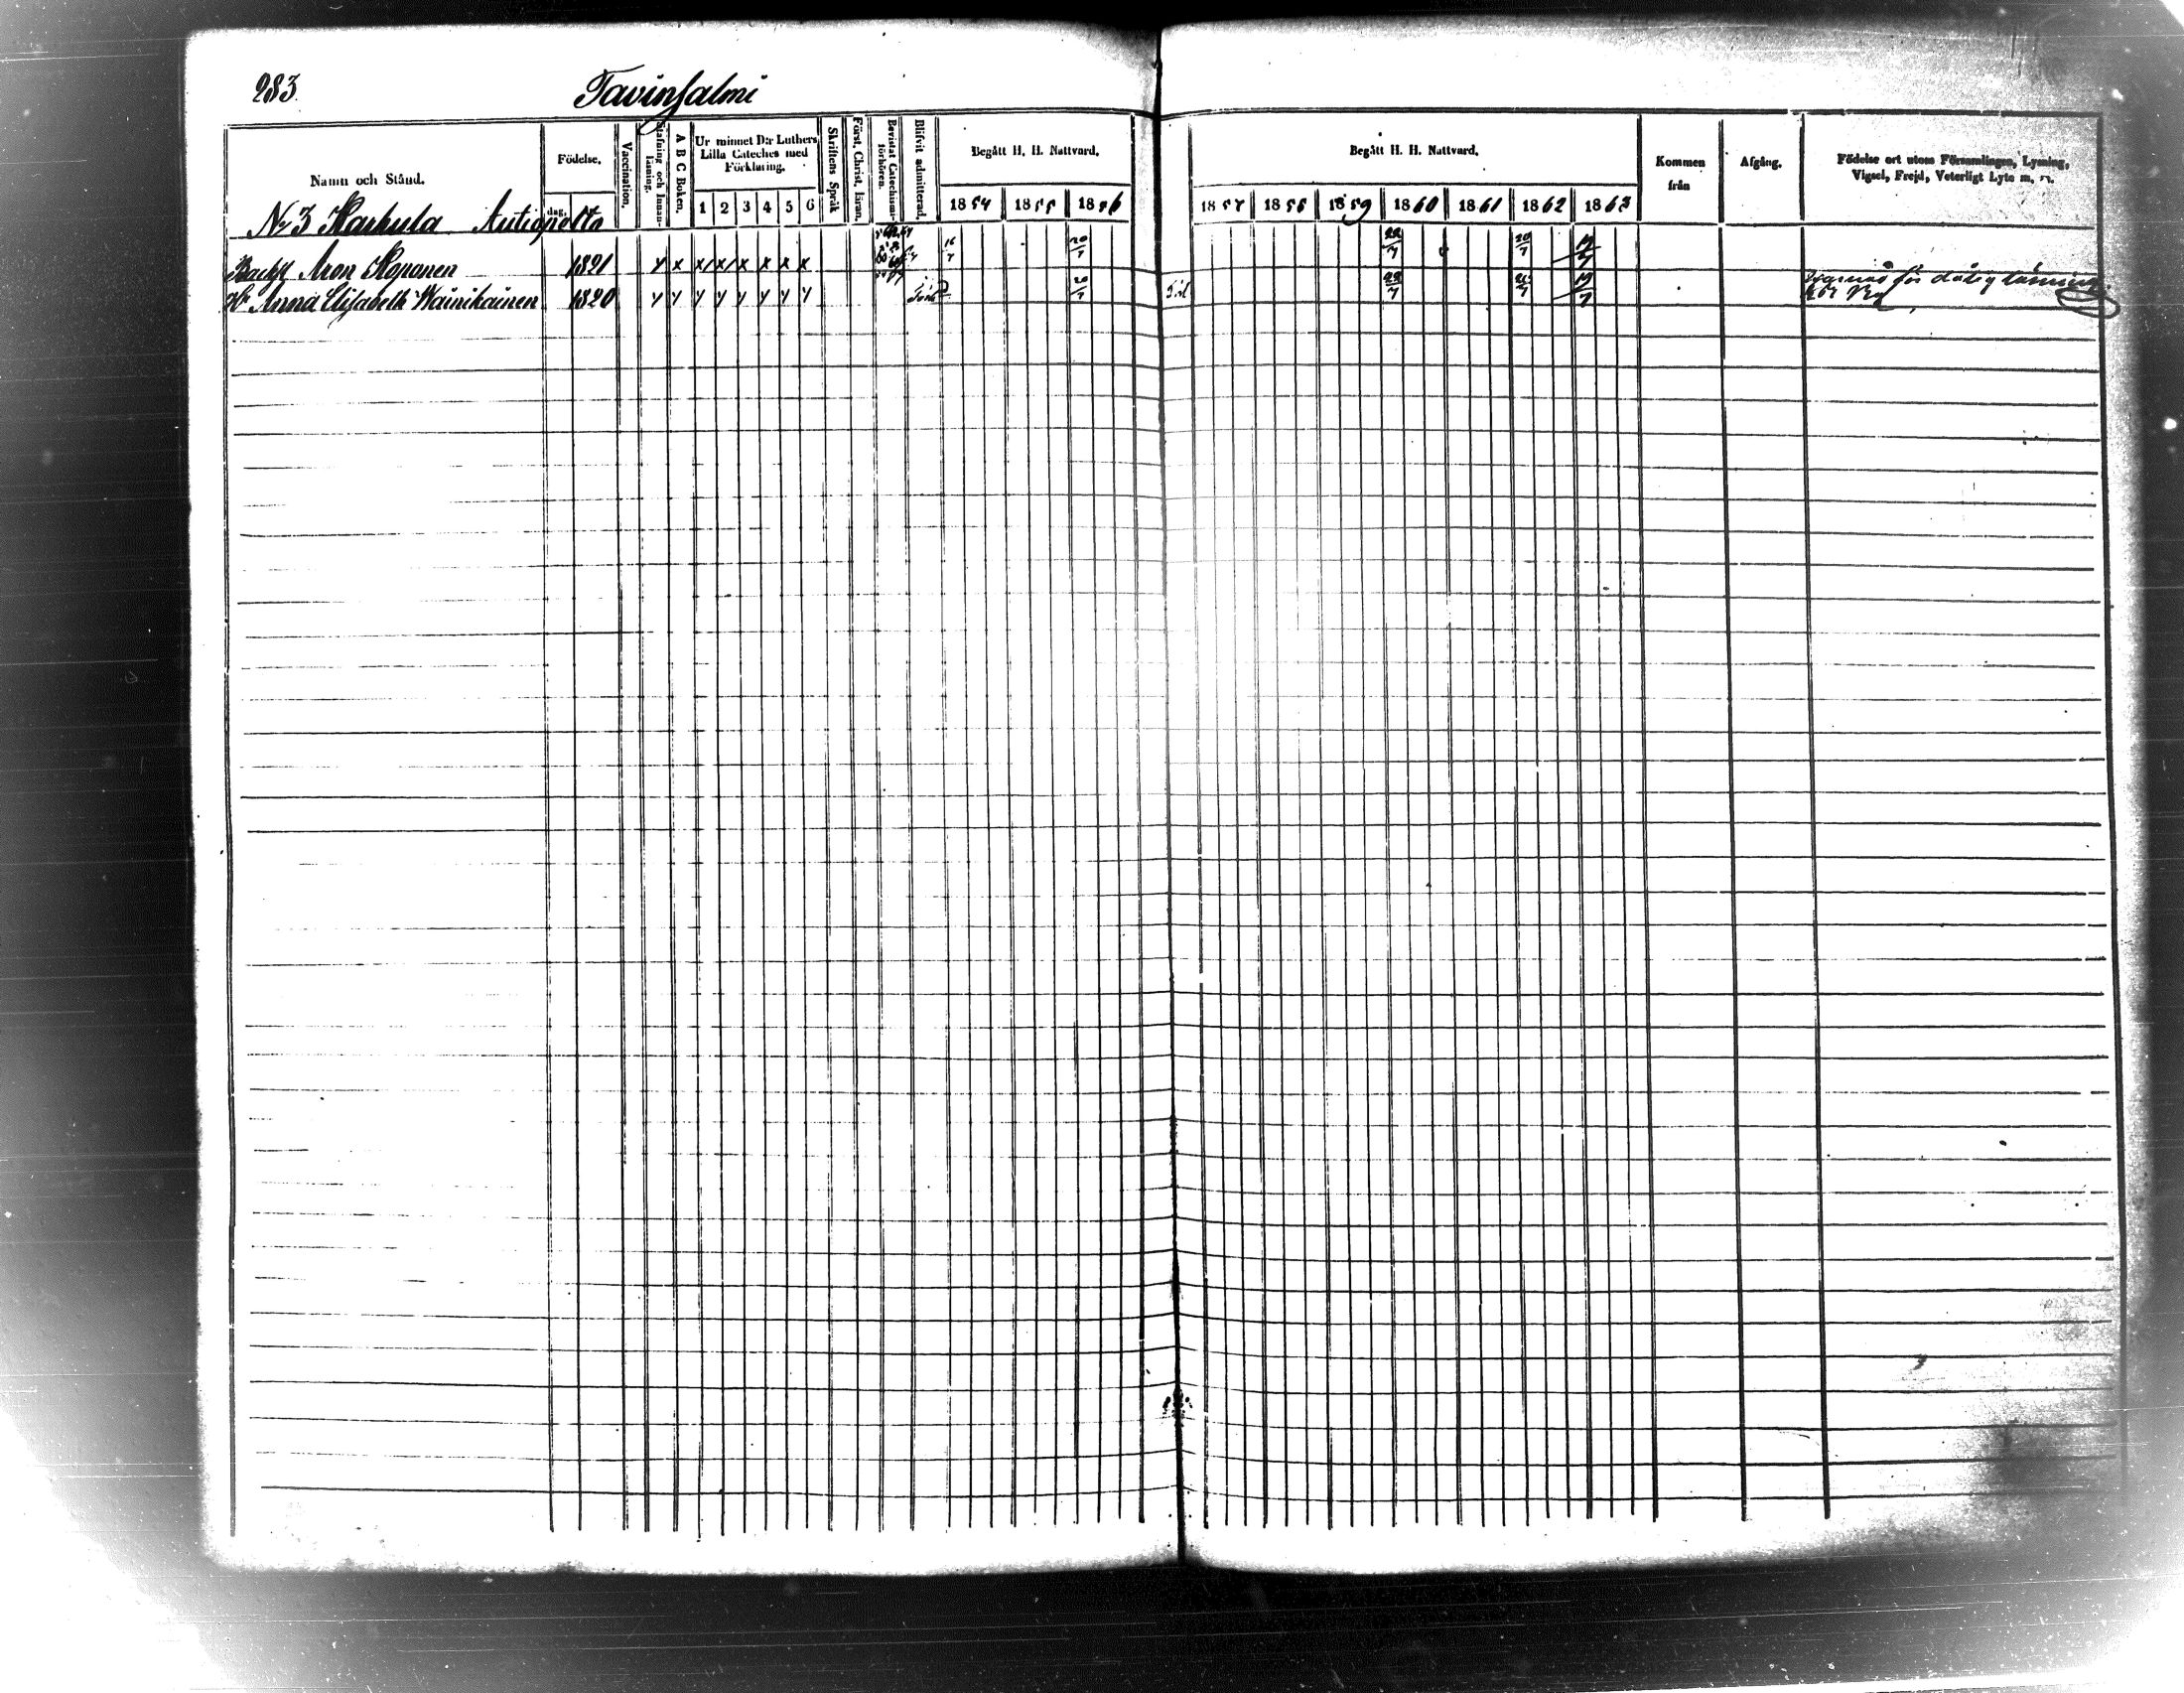 283.
Tavinsalmi
Namn och Stånd.
Födelse.
dag.
Vaccination.
Stafning och Innan-läsning.
A B C Boken.
Ur minnet D:r Luthers
Lilla Cateches med
Förklaring.
1 2 3 4 5 6
Skriftens Språk
Först. Christ. läran.
Bevistat Catechismi-förhören.
Blifvit admitterad.
Begått H. H. Nattvard.
1854 1855 1856
Begått H. H. Nattvard.
1857 1858 1859 1860 1861 1862 1863
Kommen
från
Afgång.
Födelse ort utom Församlingen, Lysning,
Vigsel, Frejd, Veterligt Lyte m. m.
No 3 Karkula Autiopelto
Aron Koponen 1821 20/7 22/7 20/7 19/7
H. Anna Elisabeth Wäinikäinen 1820 20/7 22/7 19/7
för dålig läsning